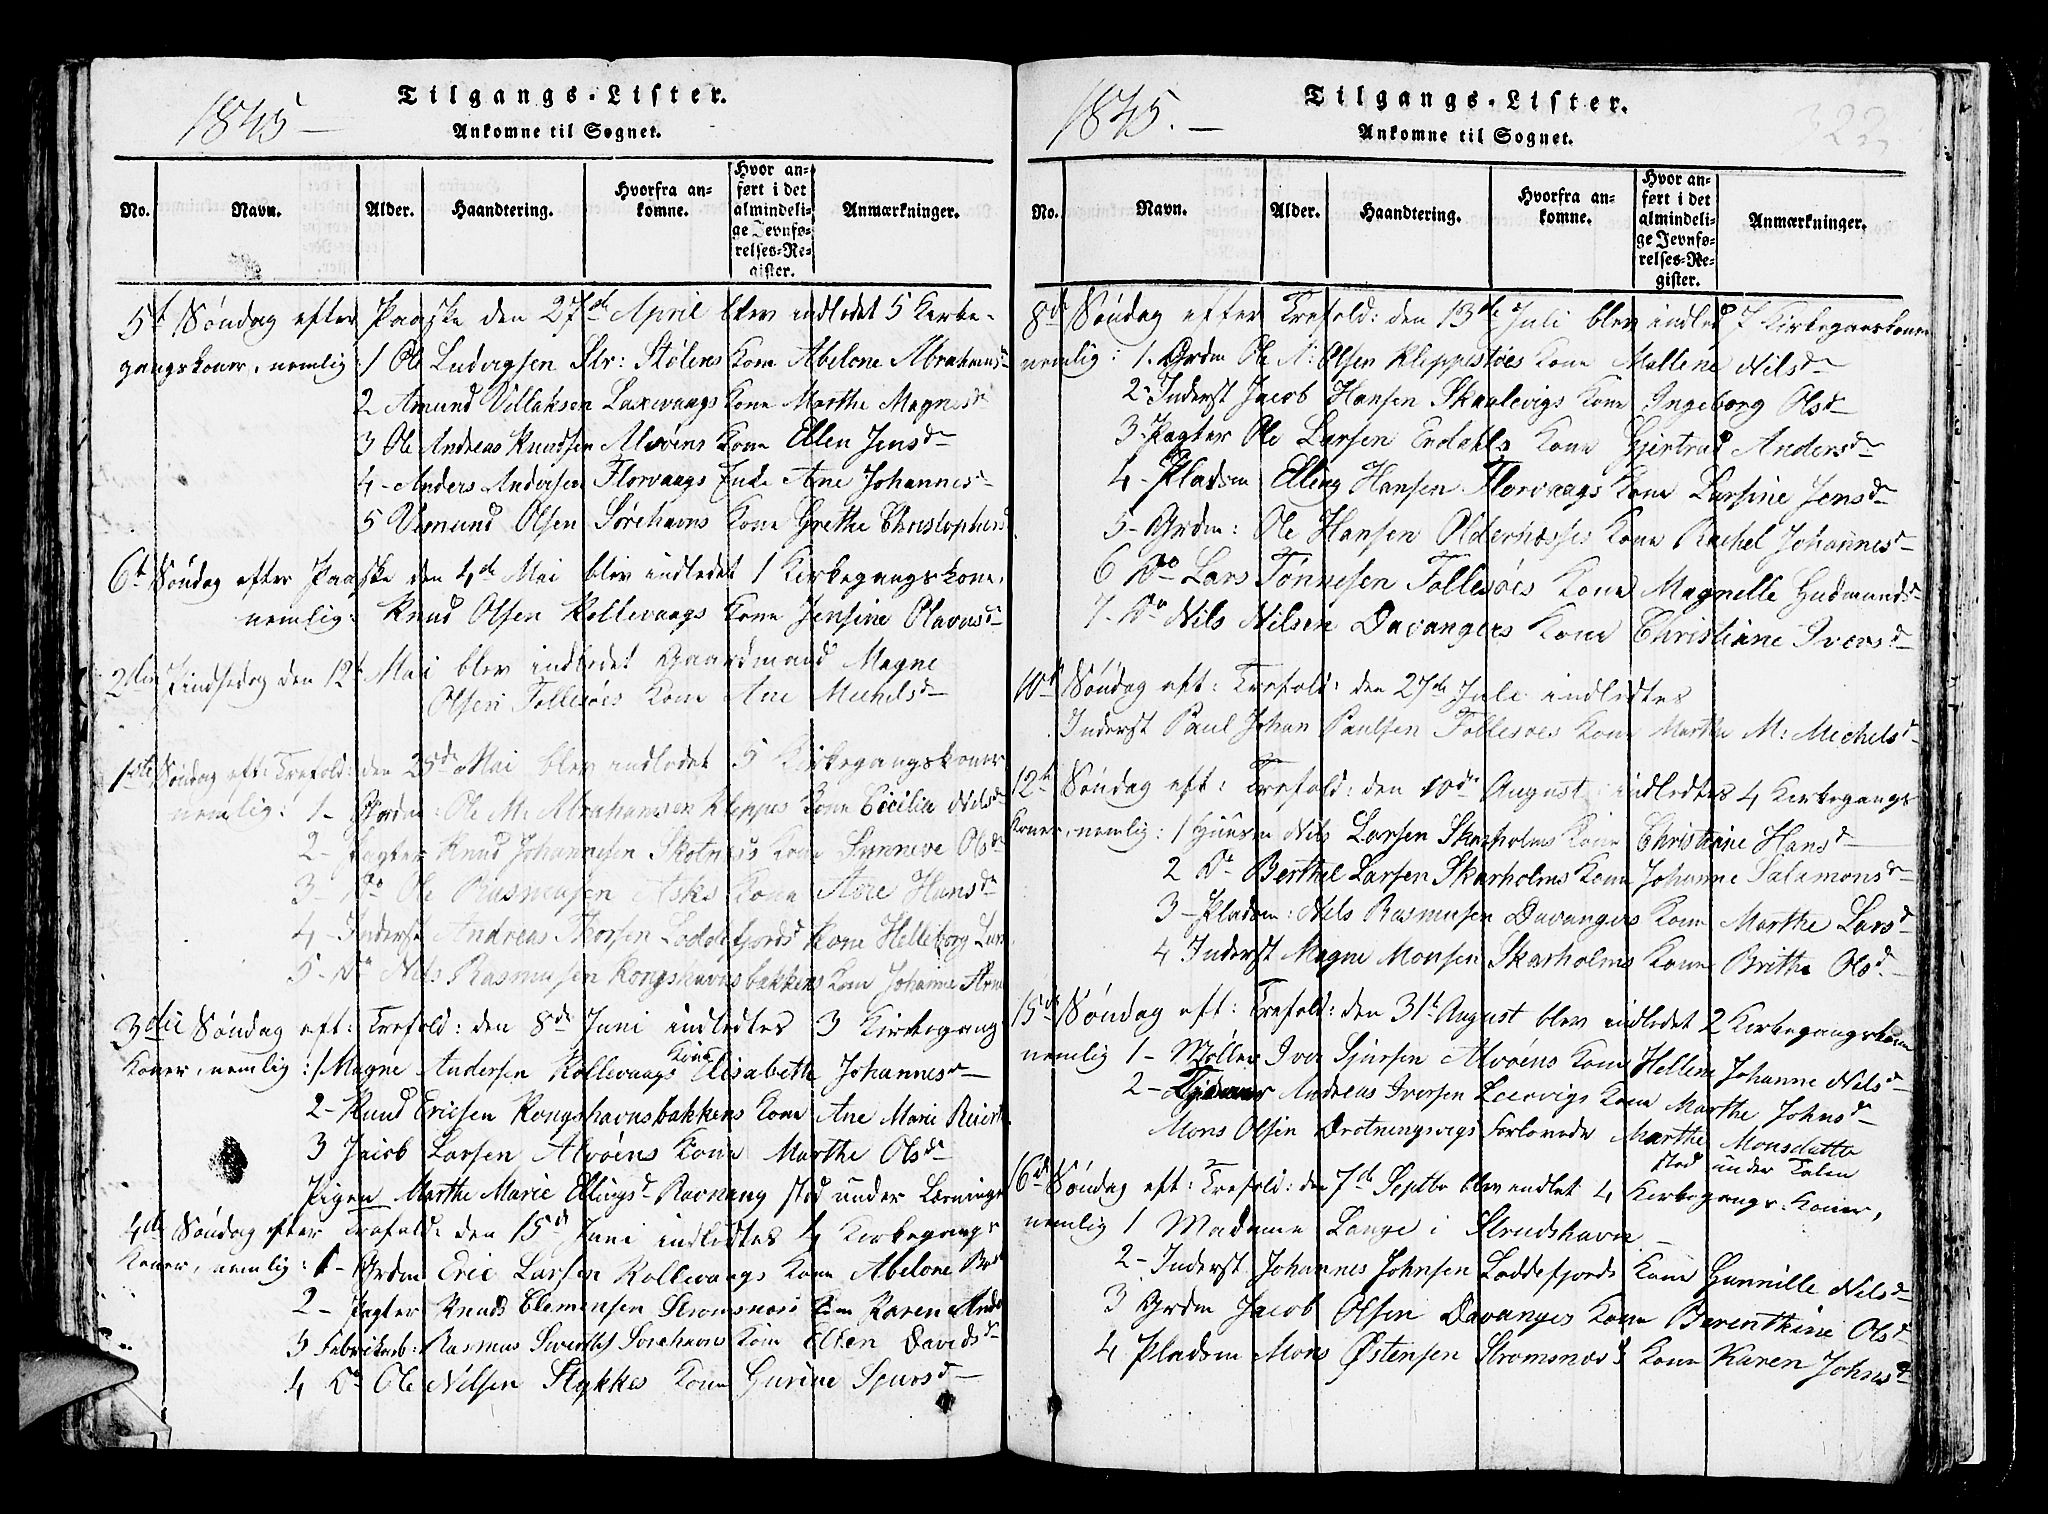 1845 —
Tilgangs-Lister.
Ankomne til Sognet.
No.
Navn.
Alder.
Haandtering.
Hvorfra an-
komne.
Hvor an-
ført i det
almindeli-
ge Jevnfø-
relses-Re-
gister.
Anmærkninger.
5t Søndag efter Paaske den 27de April blev indledet 5 Kirke-
gangskoner, nemlig: 1 Ole Ludvigsen Str: Stølens Kone Abelone Abrahamsdr
2 Amund Villaksen Laxevaags Kone Marthe Magnesdr
3 Ole Andreas Knudsen Alvøens Kone Ellen Jensdr
4 - Anders Andersen Florvaags Enke Ane Johannesdr
5 Vemund Olsen Sørehavns Kone Grethe Christophersd
6te Søndag efter Paaske den 4de Mai blev indledet 1 Kirkegangskone,
nemlig: Knud Olsen Kollevaags Kone Jensine Olavusdr
2den Pindsedag den 12te Mai blev indledet Gaardmand Magne
Olsen Tollesøes Kone Ane Michelsdr
1ste Søndag eft: Trefold: den 25de Mai blev indledet 5 Kirkegangskoner
nemlig: 1 - Grdm: Ole M: Abrahamsen Kleppes Kone Cicilia Nilsdr
2 - Pagter Knud Johannesen Skotnes's Kone Sunneve Olsdr
3 - Do Ole Rasmusen Askes Kone Aore Hansdr
4 - Inderst Andreas Thorsen Loddefjords Kone Helleborg Lars
5 - Do Nils Rasmusen Kongshavnsbakkens Kone Johanne Arne
3die Søndag eft: Trefold: den 8de Juni indledtes 3 Kirkegang
Koner, nemlig: 1 Magne Andersen Kollevaags Kone Elisabeth Johannesdr
2 - Knud Ericsen Kongshavnsbakkens Kone Ane Marie
3 Jacob Larsen Alvøens Kone Marthe Olsdr
Pigen Marthe Marie Ellingsdr Ravnang stod under Læsning
4de Søndag efter Trefold: den 15de Juni indledtes 4 Kirkegangs
Koner, nemlig: 1 - Grdm Eric Larsen Kollevaags Kone Abelone
2 - Pagter Knud Clemensen Stromsnæs Kone Karen Ands
3 Fabrikarb: Rasmus Sørehavns Kone Ellen Davidsdr
4 Do Ole Nilsen Stykkes Kone Gurine Sjursdr
1845. —
Tilgangs-Lister.
Ankomne til Sognet.
322
No.
Navn.
Alder.
Haandtering.
Hvorfra an-
komne.
Hvor an-
ført i det
almindeli-
ge Jevnfø-
relses-Re-
gister.
Anmærkninger.
8de Søndag efter Trefold: den 13de Juli blev indled 7 Kirkegangskoner
nemlig: 1. Grdm Ole N: Olsen Kleppestøes Kone Mallene Nilsdr
2 - Inderst Jacob Hansen Skaalevigs Kone Ingeborg Olsdr
3 - Pagter Ole Larsen Erdahls Kone Gjertrud Andersdr
4 - Pladsm Elling Hansen Florvaags Kone Larsine Jensdr
5 - Grdm: Ole Hansen Oldernæsses Kone Rachel Johannesdr
6 Do Lars Tønnesen Tollesøes Kone Magnelle Gudmundsdr
7 - Do Nils Nilsen Davangers Kone Christiane Iversdr
10de Søndag eft: Trefold: den 27de Juli indledtes
Inderst Paul Johan Paulsen Tollesøes Kone Marthe M: Michelsdr
12te Søndag eft: Trefold: den 10de August indledtes 4 Kirkegangs
Koner, nemlig: 1 Huusm Nils Larsen Skarholms Kone Christine Hansdr
2 Do Berthel Larsen Skarholms Kone Johanne Salamonsdr
3 - Pladsm: Nils Rasmusen Davangers Kone Marthe Larsdr
4 Inderst Magne Monsen Skarholms Kone Brithe Olsdr
15de Søndag eft: Trefold: den 31te August blev indledet 2 Kirkegangskoner
nemlig 1 - Møller Iver Sjursen Alvøens Kone Hellene Johanne Nilsdr
2 - Andreas Iversen Leervigs Kone Marthe Johnsdr
Mons Olsen Drotningsvigs Forlovede Marthe Monsdatter
stod under Talen
16de Søndag eft: Trefold: den 7de Septbr blev indlet 4 Kirkegangs-Koner,
nemlig 1 Madame Lange i Strudshavn —
2 - Inderst Johannes Johnsen Loddefjords Kone Gunnille Nilsdr
3 Grdm Jacob Olsen Davanges Kone Berenthine Olsdr
4 Pladsm Mons Østensen Stromsnæs's Kone Karen Johnsdr